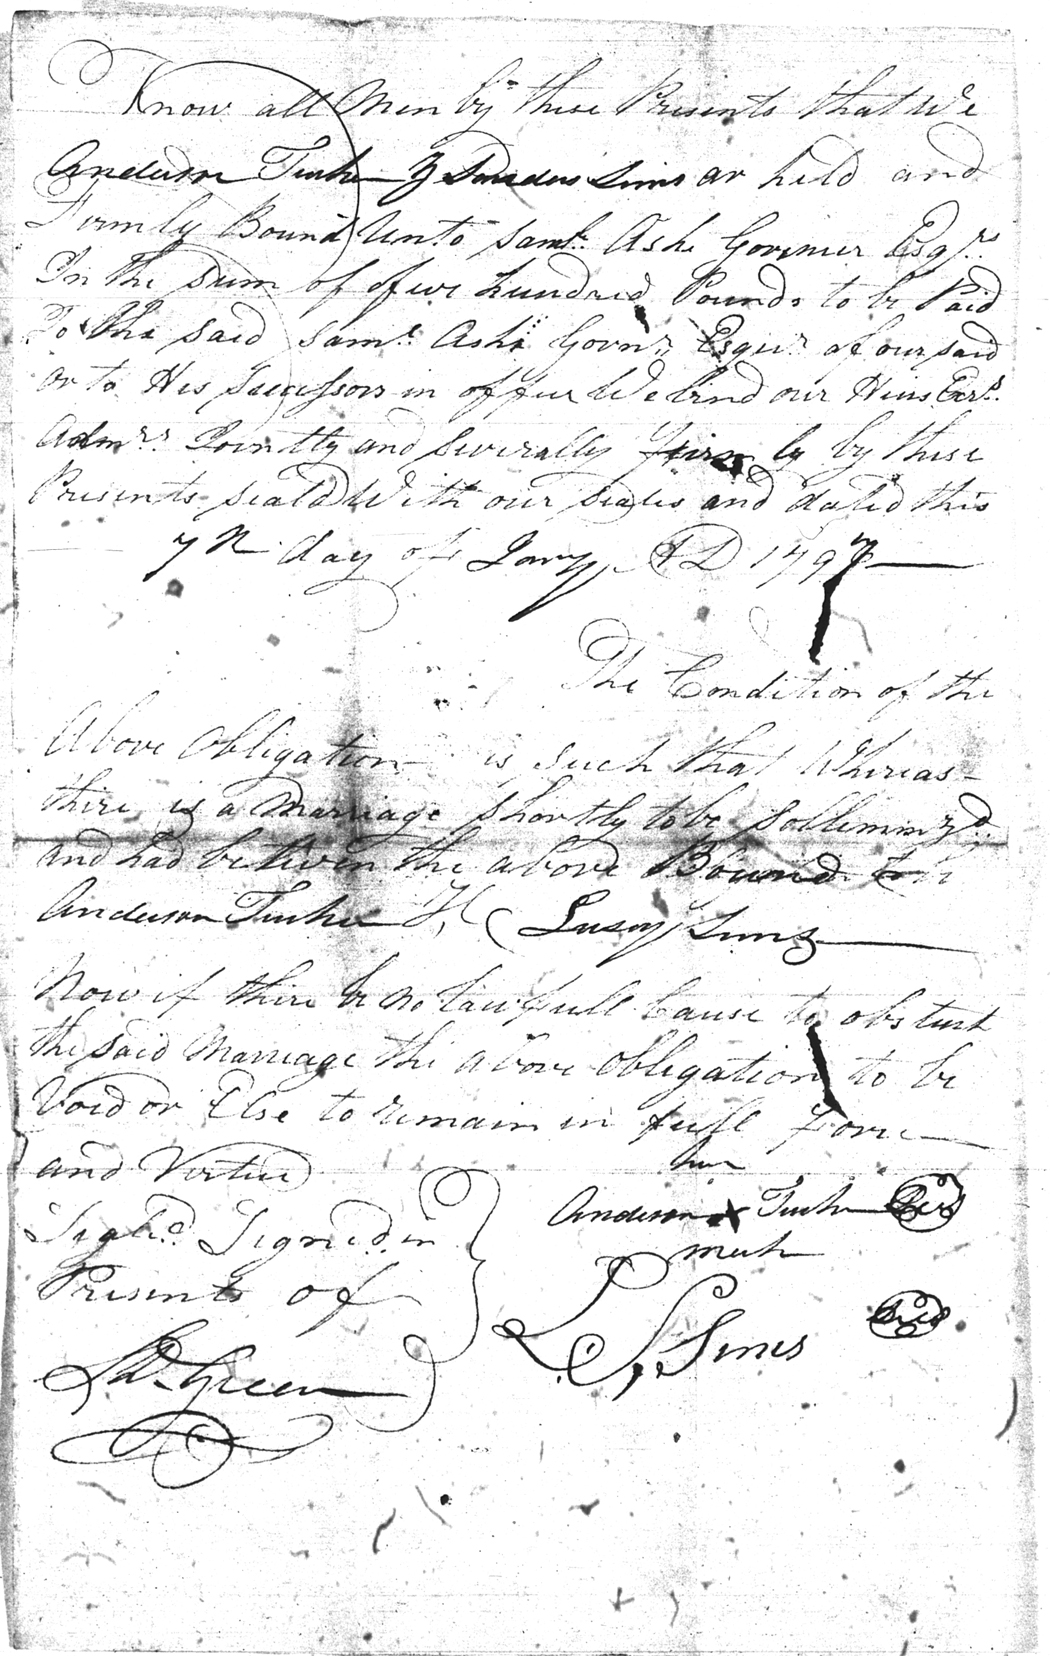 Know all Men by these Presents that We
Anderson Tucker & Saunders Sims ar held and
Firmly Bound Unto Saml. Ashe Governer Esqrs.
In the Sum of five hundred Pounds to be Paid
To the said Saml. Ashe Govnr. Esqur. of our said
or to His Successors in office We bind our Heirs Exrs.
Admrs. Jointly and Severally firmly by these
Presents Seald With our Seales and dated this
7th day of Jany AD 1797
The Condition of the
Above Obligation is Such that Whereas
there is a Marriage Shortly to be Sollemnizd.
and had between the above Bound
Anderson Tucker & Lusey Sims
Now if there be no Lawfull Cause to obstruct
the Said Marriage the above Obligation to be
Void or Else to remain in full force
and Virtue
Seald. Signed. in
Presents of
Green
his
Anderson X Tucker Seal
mark
S. Sims Seal